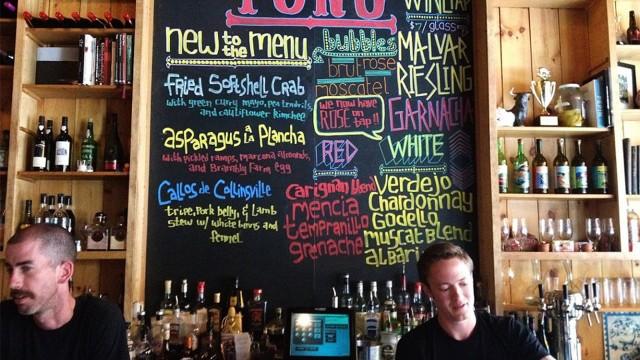 TORO
NEW to the MENU
Fried Softshell Crab
with green curry mayo, pea tendrils,
and cauliflower kimchee
asparagus a La Plancha
with pickled ramps, marcona almonds,
and Brambly Farm egg
Callos de Collinsville
tripe, Pork belly, & Lamb
stew w/ white beans and
fennel
bubbles
brut rose
moscatel
we now have
ROSÉ on
tap!!
RED
Carignan blend
mencia
tempranillo
grenache
WINE TAP
$7/glass
MALVAR
RIESLING
GARNACHA
WHITE
Verdejo
Chardonnay
Godello
Muscat Blend
albari